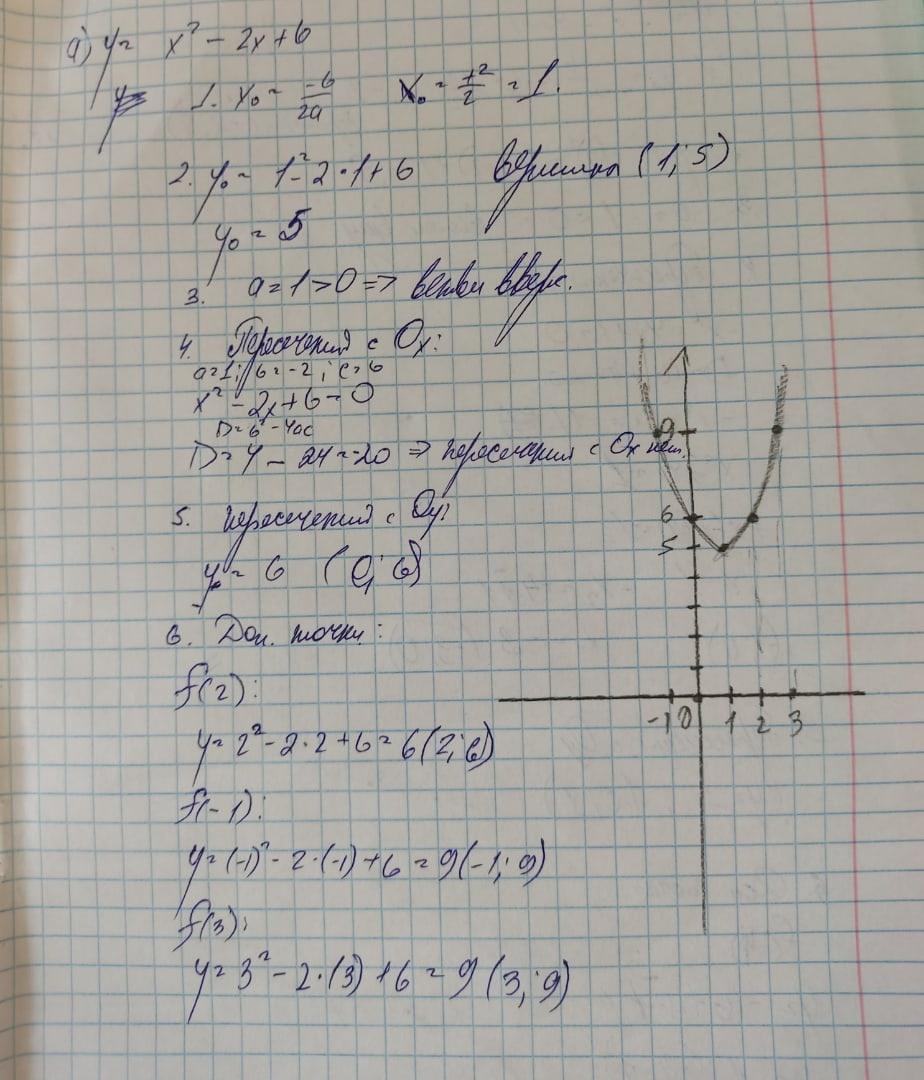 а) y = x² - 2x + 6
1. x₀ = -b/2a x₀ = +2/2 = 1.
2. y₀ = 1² - 2·1 + 6 вершина (1; 5)
y₀ = 5
3. a = 1 > 0 => ветви вверх.
4. Пересечения с Ox:
a = 1; b = -2; c = 6
x² - 2x + 6 = 0
D = b² - 4ac
D = 4 - 24 = -20 => пересечения с Ox нет.
5. пересечения с Oy:
y = 6 (0; 6)
6. Доп. точки:
f(2):
y = 2² - 2·2 + 6 = 6 (2; 6)
f(-1):
y = (-1)² - 2·(-1) + 6 = 9 (-1; 9)
f(3):
y = 3² - 2·(3) + 6 = 9 (3; 9)
9
6
5
-1 0 1 2 3